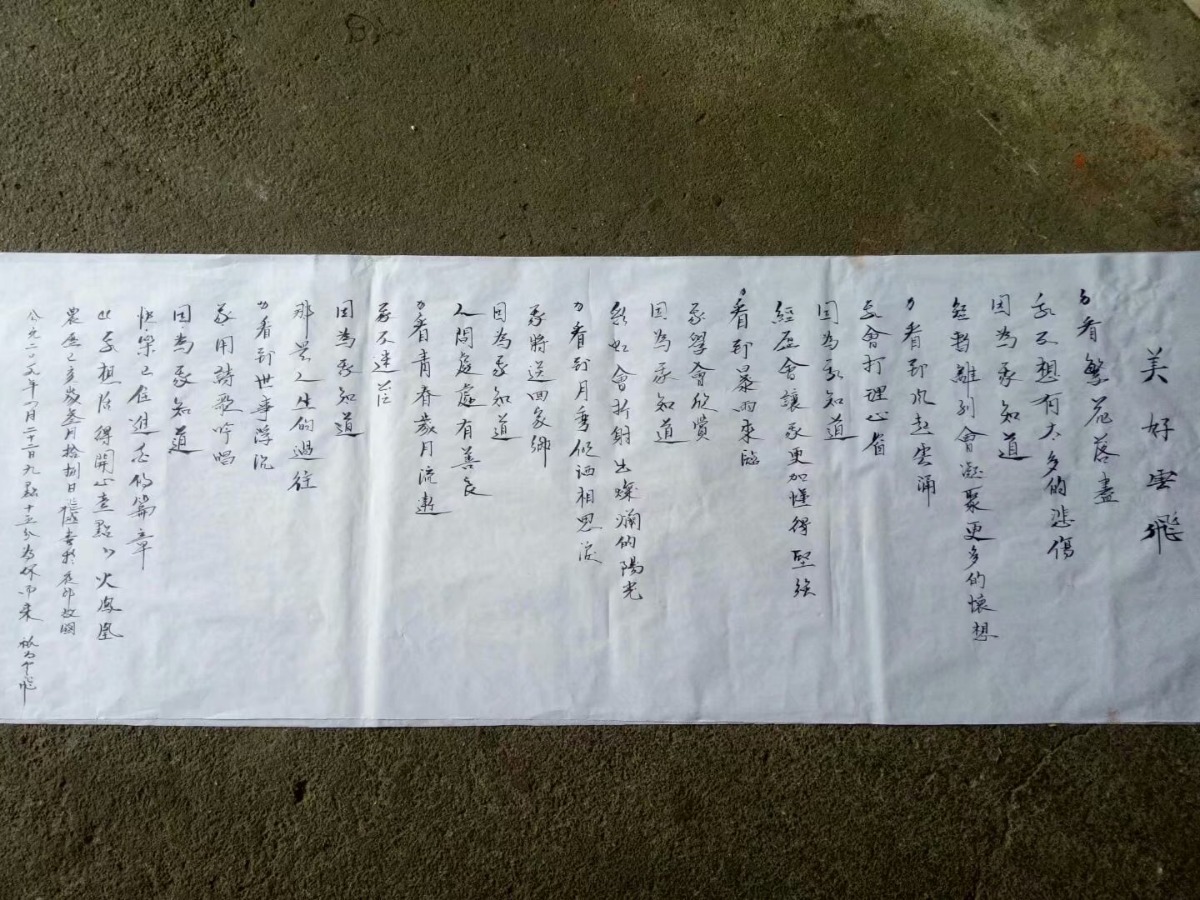 美好雲飛
看繁花落盡
我不想有太多的悲傷
因為我知道
短暫離別會凝聚更多的懷想
看到風起雲涌
我會打理心省
因為我知道
經歷會讓我更加懂得堅強
看到暴雨來臨
我學會欣賞
因為我知道
彩虹會折射出燦爛的陽光
看到月季傾洒相思淚
我將送回家鄉
因為我知道
人間處處有善良
看青春歲月流逝
我不迷茫
因為我知道
那是人生的過往
看到世事浮沉
我用詩歌吟唱
因為我知道
快樂已住進我的篇章
我想活得開心壹點 火鳳凰
農歷己亥歲叁月拾捌日
公元二〇一九年四月二十二日九點十五分為你而來